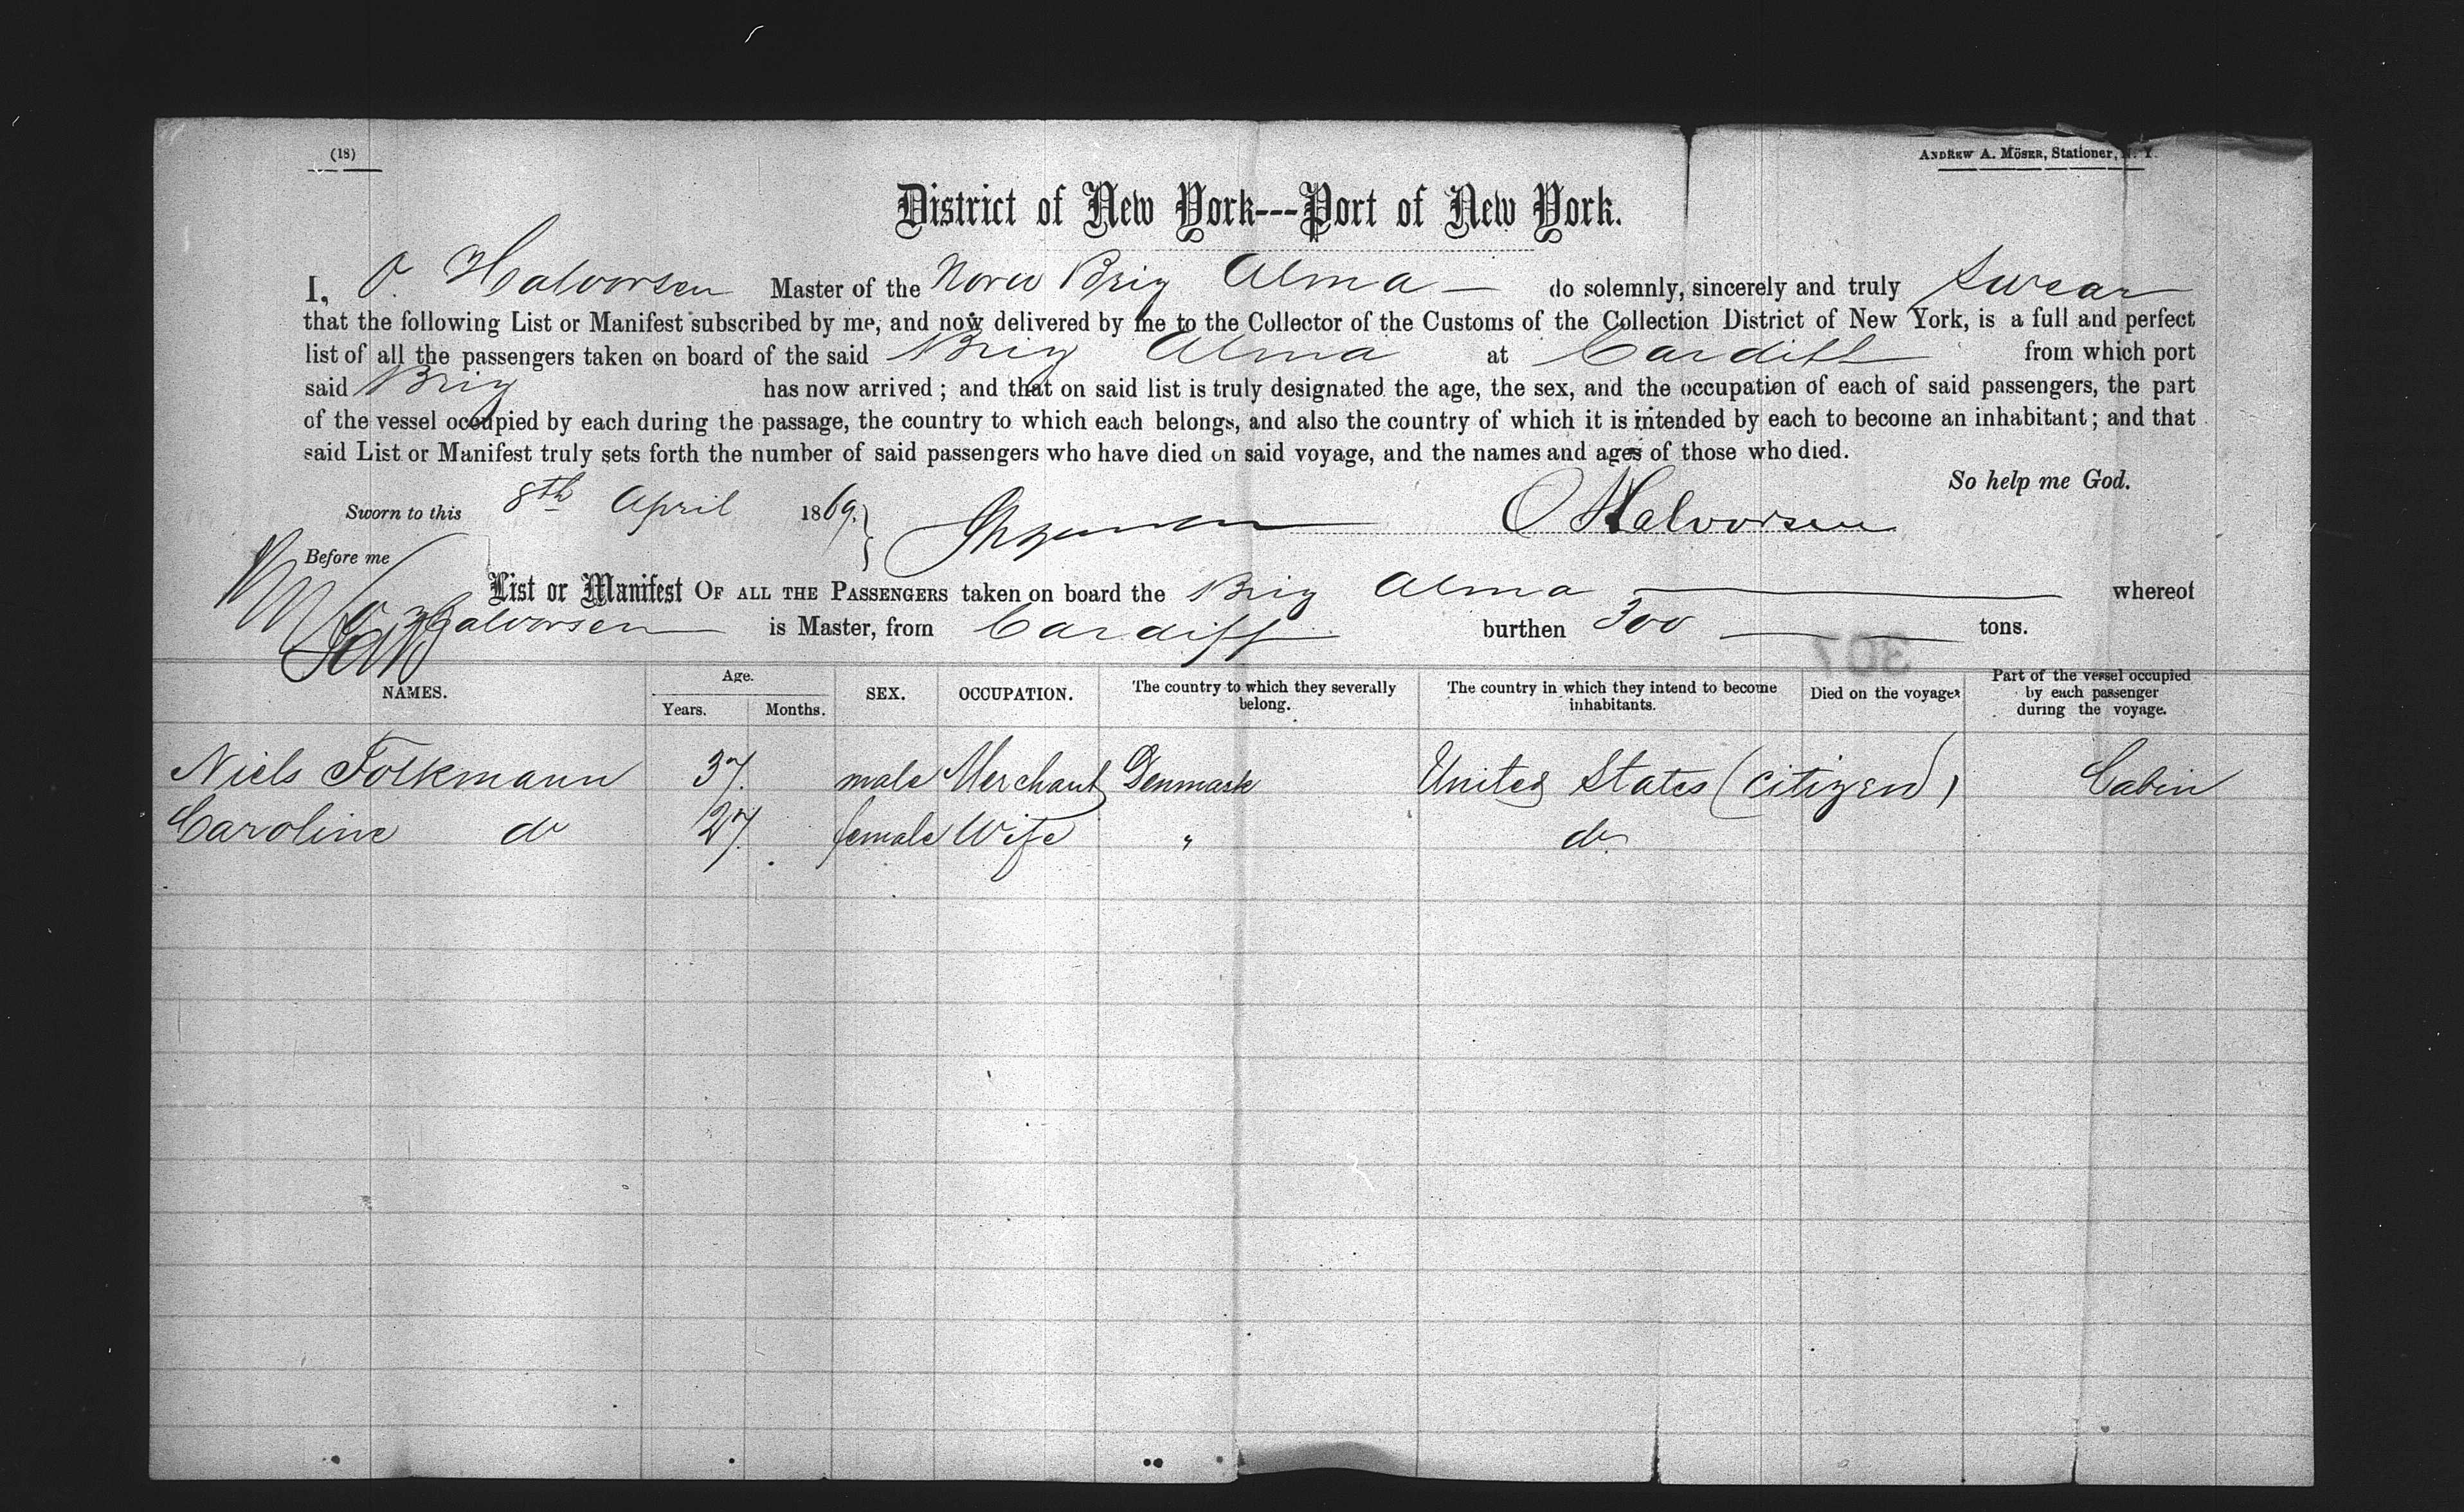 (18)
ANDREW A. MÖSER, Stationer, N. Y.
District of New York---Port of New York.
I, O. Halvorsen Master of the Norw Brig Alma — do solemnly, sincerely and truly swear
that the following List or Manifest subscribed by me, and now delivered by me to the Collector of the Customs of the Collection District of New York, is a full and perfect
list of all the passengers taken on board of the said Brig Alma at Cardiff from which port
said Brig has now arrived; and that on said list is truly designated the age, the sex, and the occupation of each of said passengers, the part
of the vessel occupied by each during the passage, the country to which each belongs, and also the country of which it is intended by each to become an inhabitant; and that
said List or Manifest truly sets forth the number of said passengers who have died on said voyage, and the names and ages of those who died.
So help me God.
Sworn to this 8th April 1869. O Halvorsen
Before me
List or Manifest OF ALL THE PASSENGERS taken on board the Brig Alma whereof
O. Halvorsen is Master, from Cardiff burthen 300 tons.
307
NAMES. Age. Years. Months. SEX. OCCUPATION. The country to which they severally belong. The country in which they intend to become inhabitants. Died on the voyage. Part of the vessel occupied by each passenger during the voyage.
Niels Folkmann 37. male Merchant Denmark United States (citizen) Cabin
Caroline do 27. female Wife " do